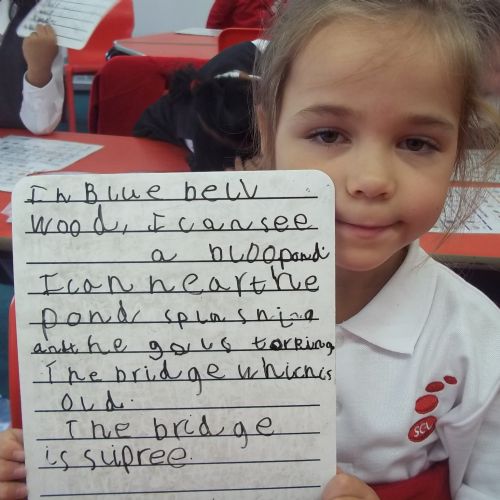 In Blue bell
wood, I can see
a bloo pond.
I can hear the
pond splashing
and the gols torking
The bridge which is
old.
The bridge
is supree.
SCL